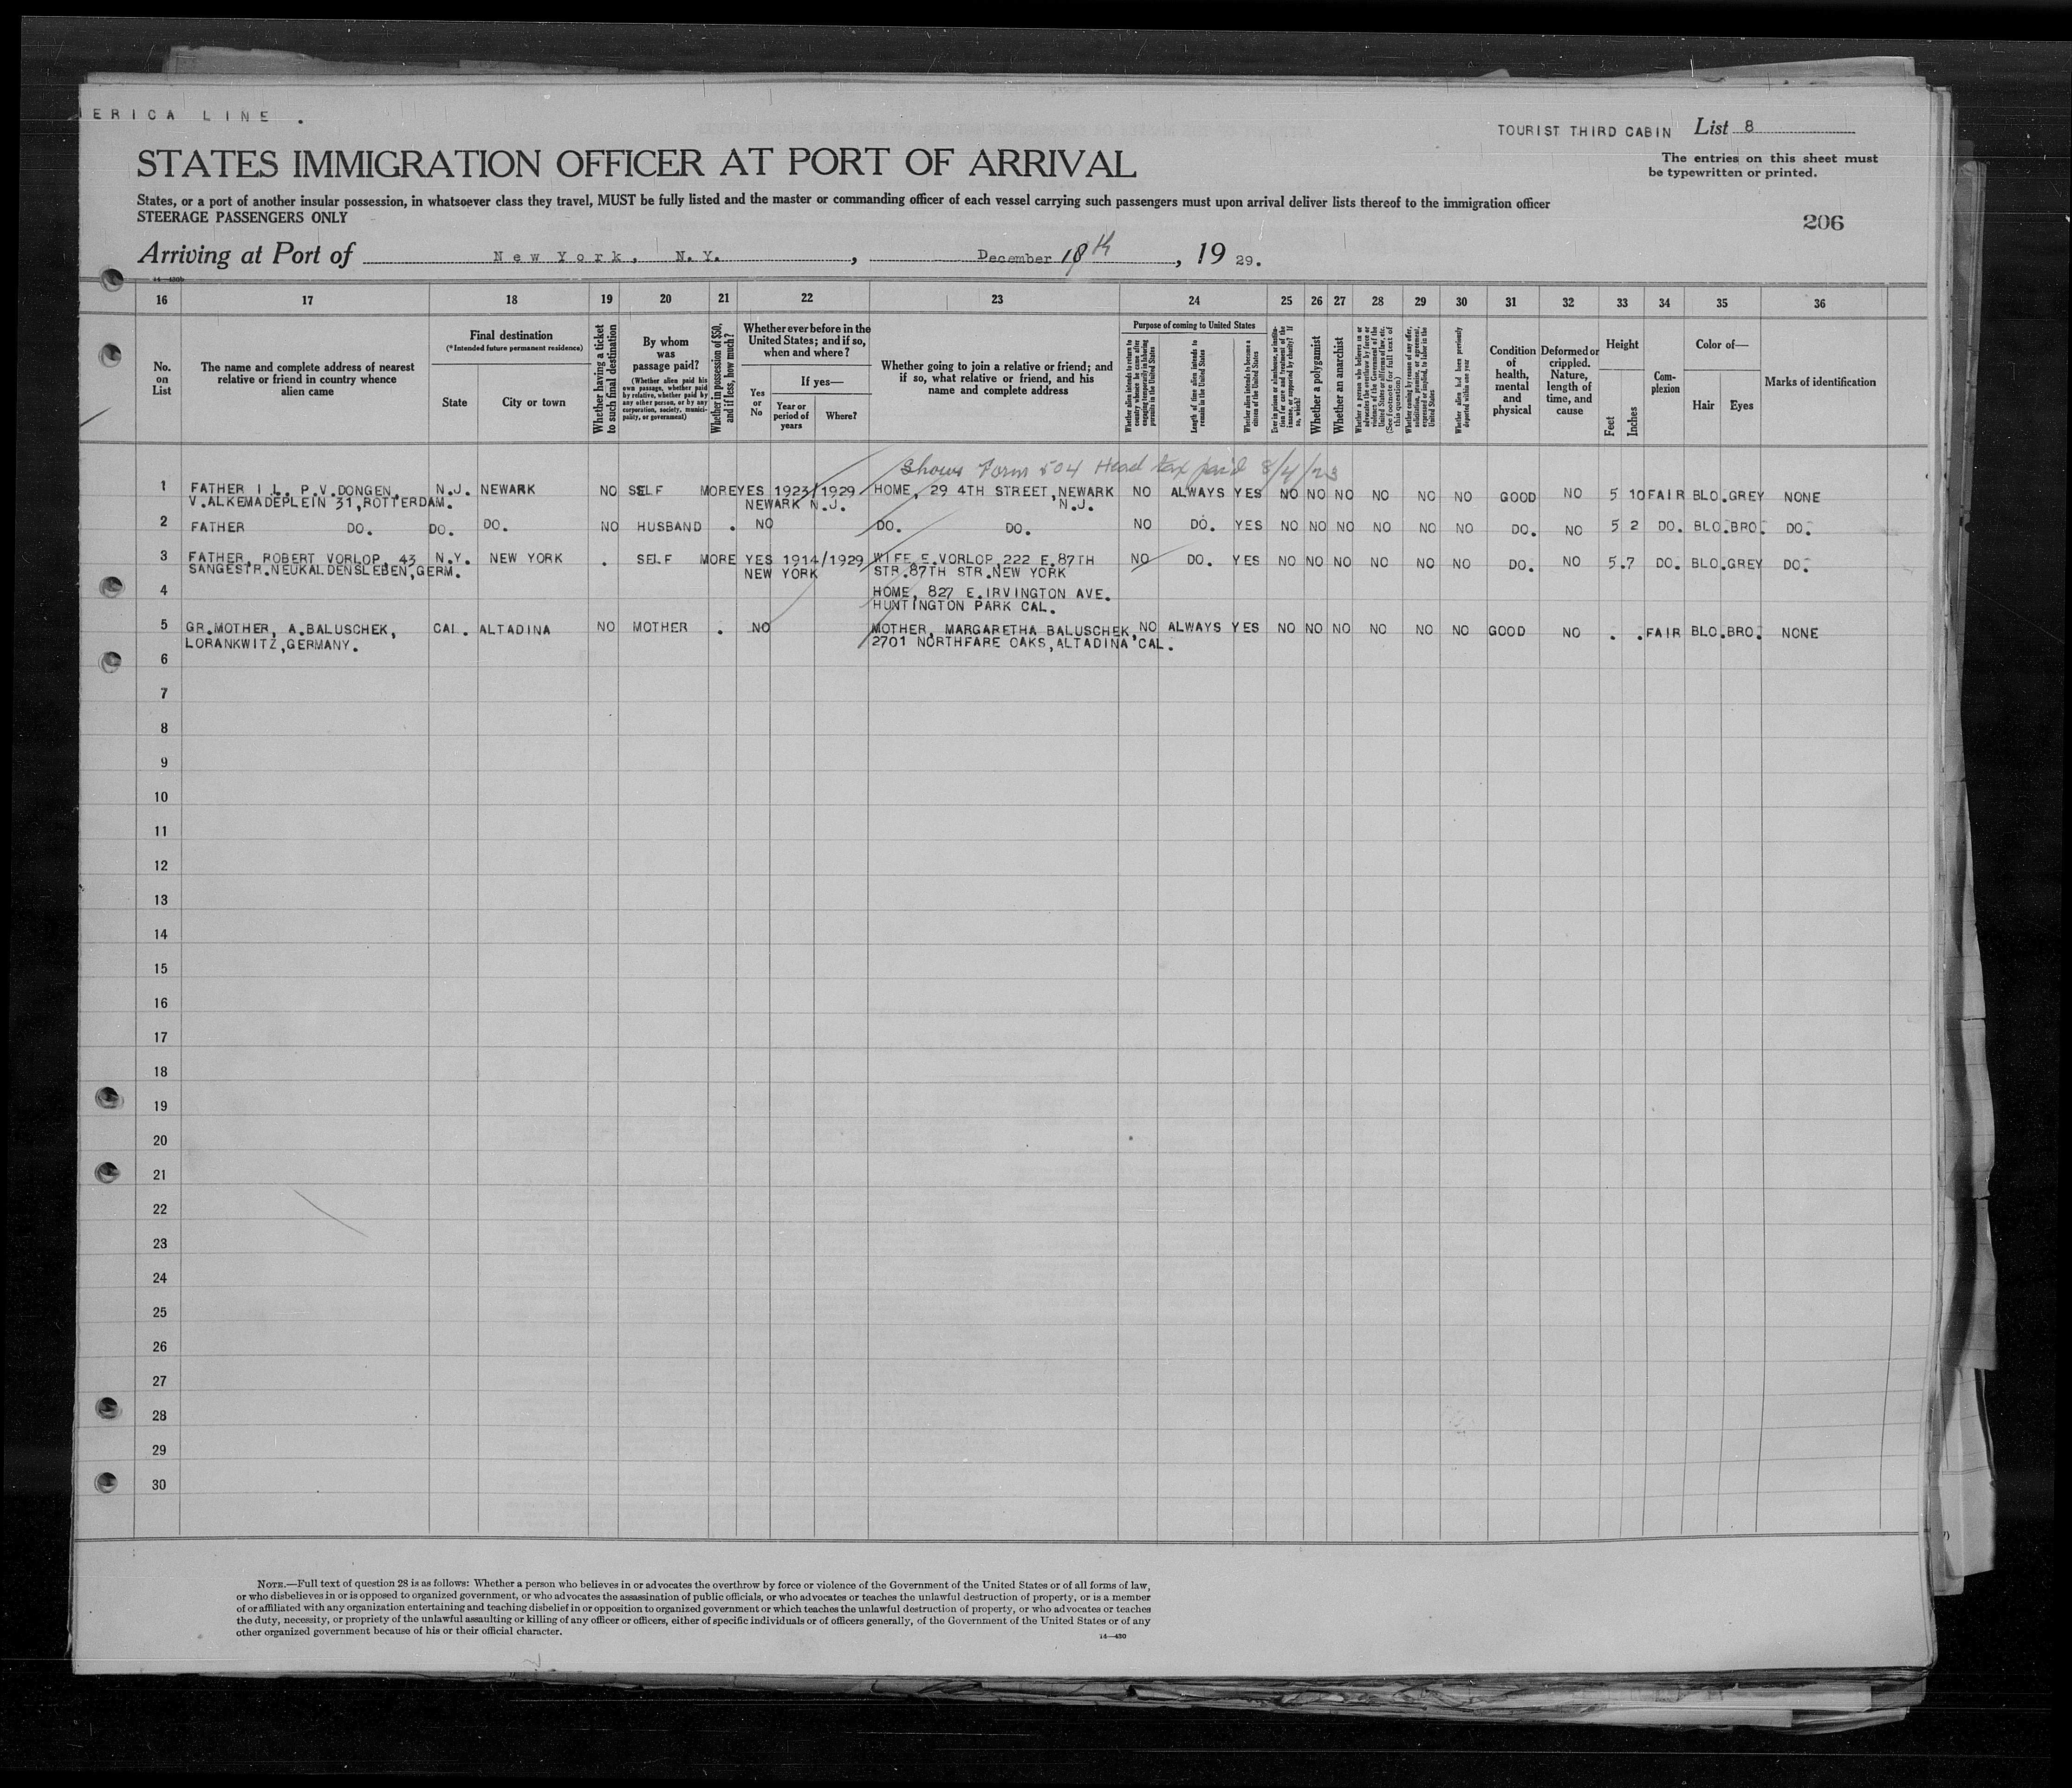 ERICA LINE .
TOURIST THIRD CABIN List 8
STATES IMMIGRATION OFFICER AT PORT OF ARRIVAL
The entries on this sheet must
be typewritten or printed.
States, or a port of another insular possession, in whatsoever class they travel, MUST be fully listed and the master or commanding officer of each vessel carrying such passengers must upon arrival deliver lists thereof to the immigration officer
STEERAGE PASSENGERS ONLY
206
Arriving at Port of New York, N.Y. , December 18th , 19 29.
14—430b
16 17 18 19 20 21 22 23 24 25 26 27 28 29 30 31 32 33 34 35 36
No. on List
The name and complete address of nearest relative or friend in country whence alien came
Final destination
(*Intended future permanent residence)
State
City or town
Whether having a ticket to such final destination
By whom was passage paid?
(Whether alien paid his own passage, whether paid by relative, whether paid by any other person, or by any corporation, society, municipality, or government)
Whether in possession of $50, and if less, how much?
Whether ever before in the United States; and if so, when and where?
Yes or No
If yes—
Year or period of years
Where?
Whether going to join a relative or friend; and if so, what relative or friend, and his name and complete address
Purpose of coming to United States
Whether alien intends to return to country whence he came after engaging temporarily in laboring pursuits in the United States
Length of time alien intends to remain in the United States
Whether alien intends to become a citizen of the United States
Ever in prison or almshouse, or institution for care and treatment of the insane, or supported by charity? If so, which?
Whether a polygamist
Whether an anarchist
Whether a person who believes in or advocates the overthrow by force or violence of the Government of the United States or all forms of law, etc. (See footnote for full text of this question)
Whether coming by reason of any offer, solicitation, promise, or agreement, expressed or implied, to labor in the United States
Whether alien had been previously deported within one year
Condition of health, mental and physical
Deformed or crippled. Nature, length of time, and cause
Height
Feet
Inches
Complexion
Color of—
Hair
Eyes
Marks of identification
Shows Form 504 Head tax paid 8/4/23
1 FATHER I.L. P.V.DONGEN, N.J. NEWARK NO SELF MORE YES 1923/1929 HOME, 29 4TH STREET,NEWARK NO ALWAYS YES NO NO NO NO NO NO GOOD NO 5 10 FAIR BLO.GREY NONE
V.ALKEMADEPLEIN 31,ROTTERDAM. NEWARK N.J. N.J.
2 FATHER DO. DO. DO. NO HUSBAND . NO DO. DO. NO DO. YES NO NO NO NO NO NO DO. NO 5 2 DO. BLO.BRO. DO.
3 FATHER, ROBERT VORLOP, 43 N.Y. NEW YORK . SELF MORE YES 1914/1929 WIFE E.VORLOP,222 E.87TH NO DO. YES NO NO NO NO NO NO DO. NO 5.7 DO. BLO.GREY DO.
SANGESTR.NEUKALDENSLEBEN,GERM. NEW YORK STR.87TH STR.NEW YORK
4 HOME, 827 E.IRVINGTON AVE.
HUNTINGTON PARK CAL.
5 GR.MOTHER, A.BALUSCHEK, CAL. ALTADINA NO MOTHER . NO MOTHER, MARGARETHA BALUSCHEK, NO ALWAYS YES NO NO NO NO NO NO GOOD NO . . FAIR BLO.BRO. NONE
LORANKWITZ,GERMANY. 2701 NORTHFARE OAKS,ALTADINA CAL.
6
7
8
9
10
11
12
13
14
15
16
17
18
19
20
21
22
23
24
25
26
27
28
29
30
NOTE.—Full text of question 28 is as follows: Whether a person who believes in or advocates the overthrow by force or violence of the Government of the United States or of all forms of law,
or who disbelieves in or is opposed to organized government, or who advocates the assassination of public officials, or who advocates or teaches the unlawful destruction of property, or is a member
of or affiliated with any organization entertaining and teaching disbelief in or opposition to organized government or which teaches the unlawful destruction of property, or who advocates or teaches
the duty, necessity, or propriety of the unlawful assaulting or killing of any officer or officers, either of specific individuals or of officers generally, of the Government of the United States or of any
other organized government because of his or their official character.
14—430